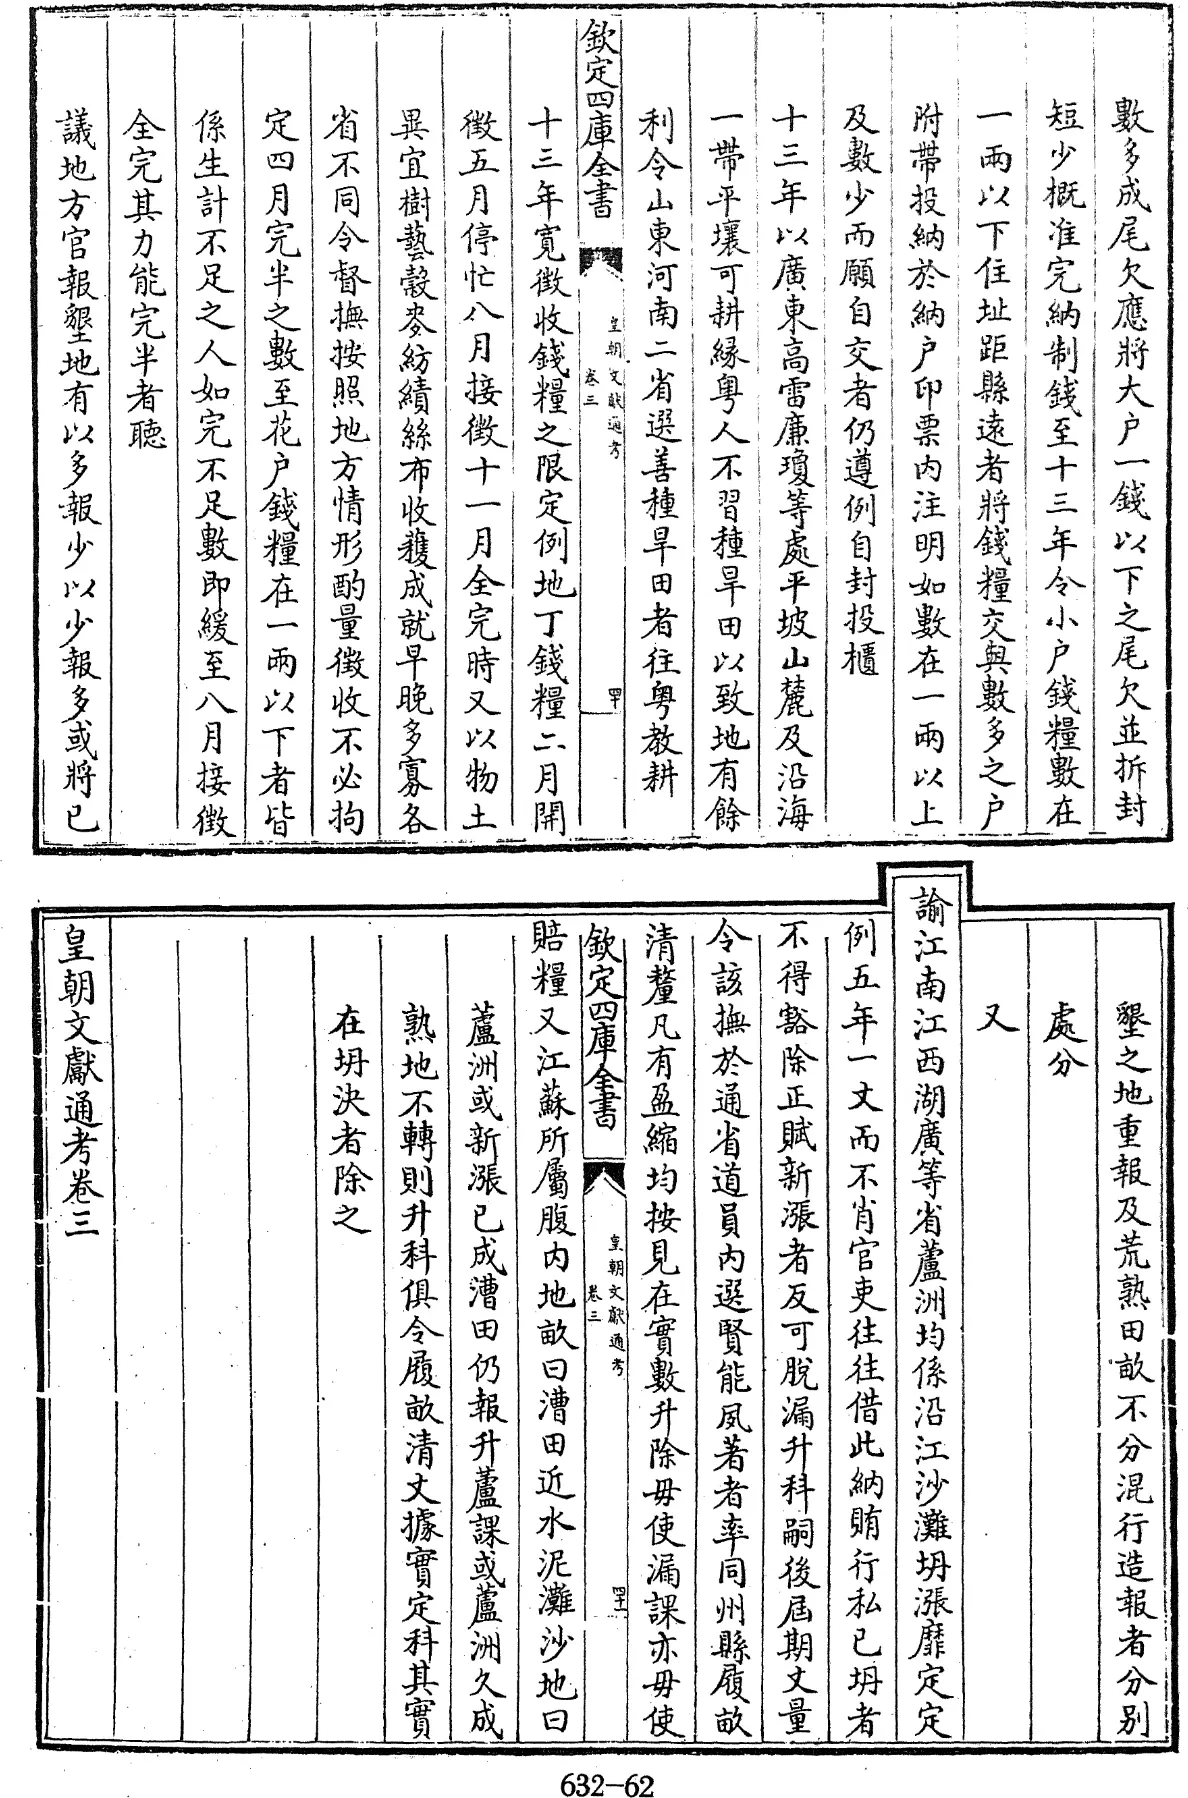 數多成尾欠應將大户一錢以下之尾欠並拆封
短少概准完納制錢至十三年令小户錢糧數在
一兩以下住址距縣遠者將錢糧交與數多之户
附帶投納於納户印票内注明如數在一兩以上
及數少而願自交者仍遵例自封投櫃
十三年以廣東高雷廉瓊等處平坡山麓及沿海
一帶平壤可耕緣粤人不習種旱田以致地有餘
利令山東河南二省選善種旱田者往粤教耕
欽定四庫全書
皇朝文獻通考
卷三
四十
十三年寛徴收錢糧之限定例地丁錢糧二月開
徴五月停忙八月接徴十一月全完時又以物土
異宜樹藝穀麥紡績絲布收穫成就早晚多寡各
省不同令督撫按照地方情形酌量徴收不必拘
定四月完半之數至花户錢糧在一兩以下者皆
係生計不足之人如完不足數即緩至八月接徴
全完其力能完半者聽
議地方官報墾地有以多報少以少報多或將已
墾之地重報及荒熟田畝不分混行造報者分别
處分
又
諭江南江西湖廣等省蘆洲均係沿江沙灘坍漲靡定定
例五年一丈而不肖官吏往往借此納賄行私已坍者
不得豁除正賦新漲者反可脫漏升科嗣後屆期丈量
令該撫於通省道員内選賢能夙著者率同州縣履畝
清釐凡有盈縮均按見在實數升除毋使漏課亦毋使
欽定四庫全書
皇朝文獻通考
卷三
四十一
賠糧又江蘇所屬腹内地畝曰漕田近水泥灘沙地曰
蘆洲或新漲已成漕田仍報升蘆課或蘆洲久成
熟地不轉則升科俱令履畝清丈據實定科其實
在坍決者除之
皇朝文獻通考卷三
632-62